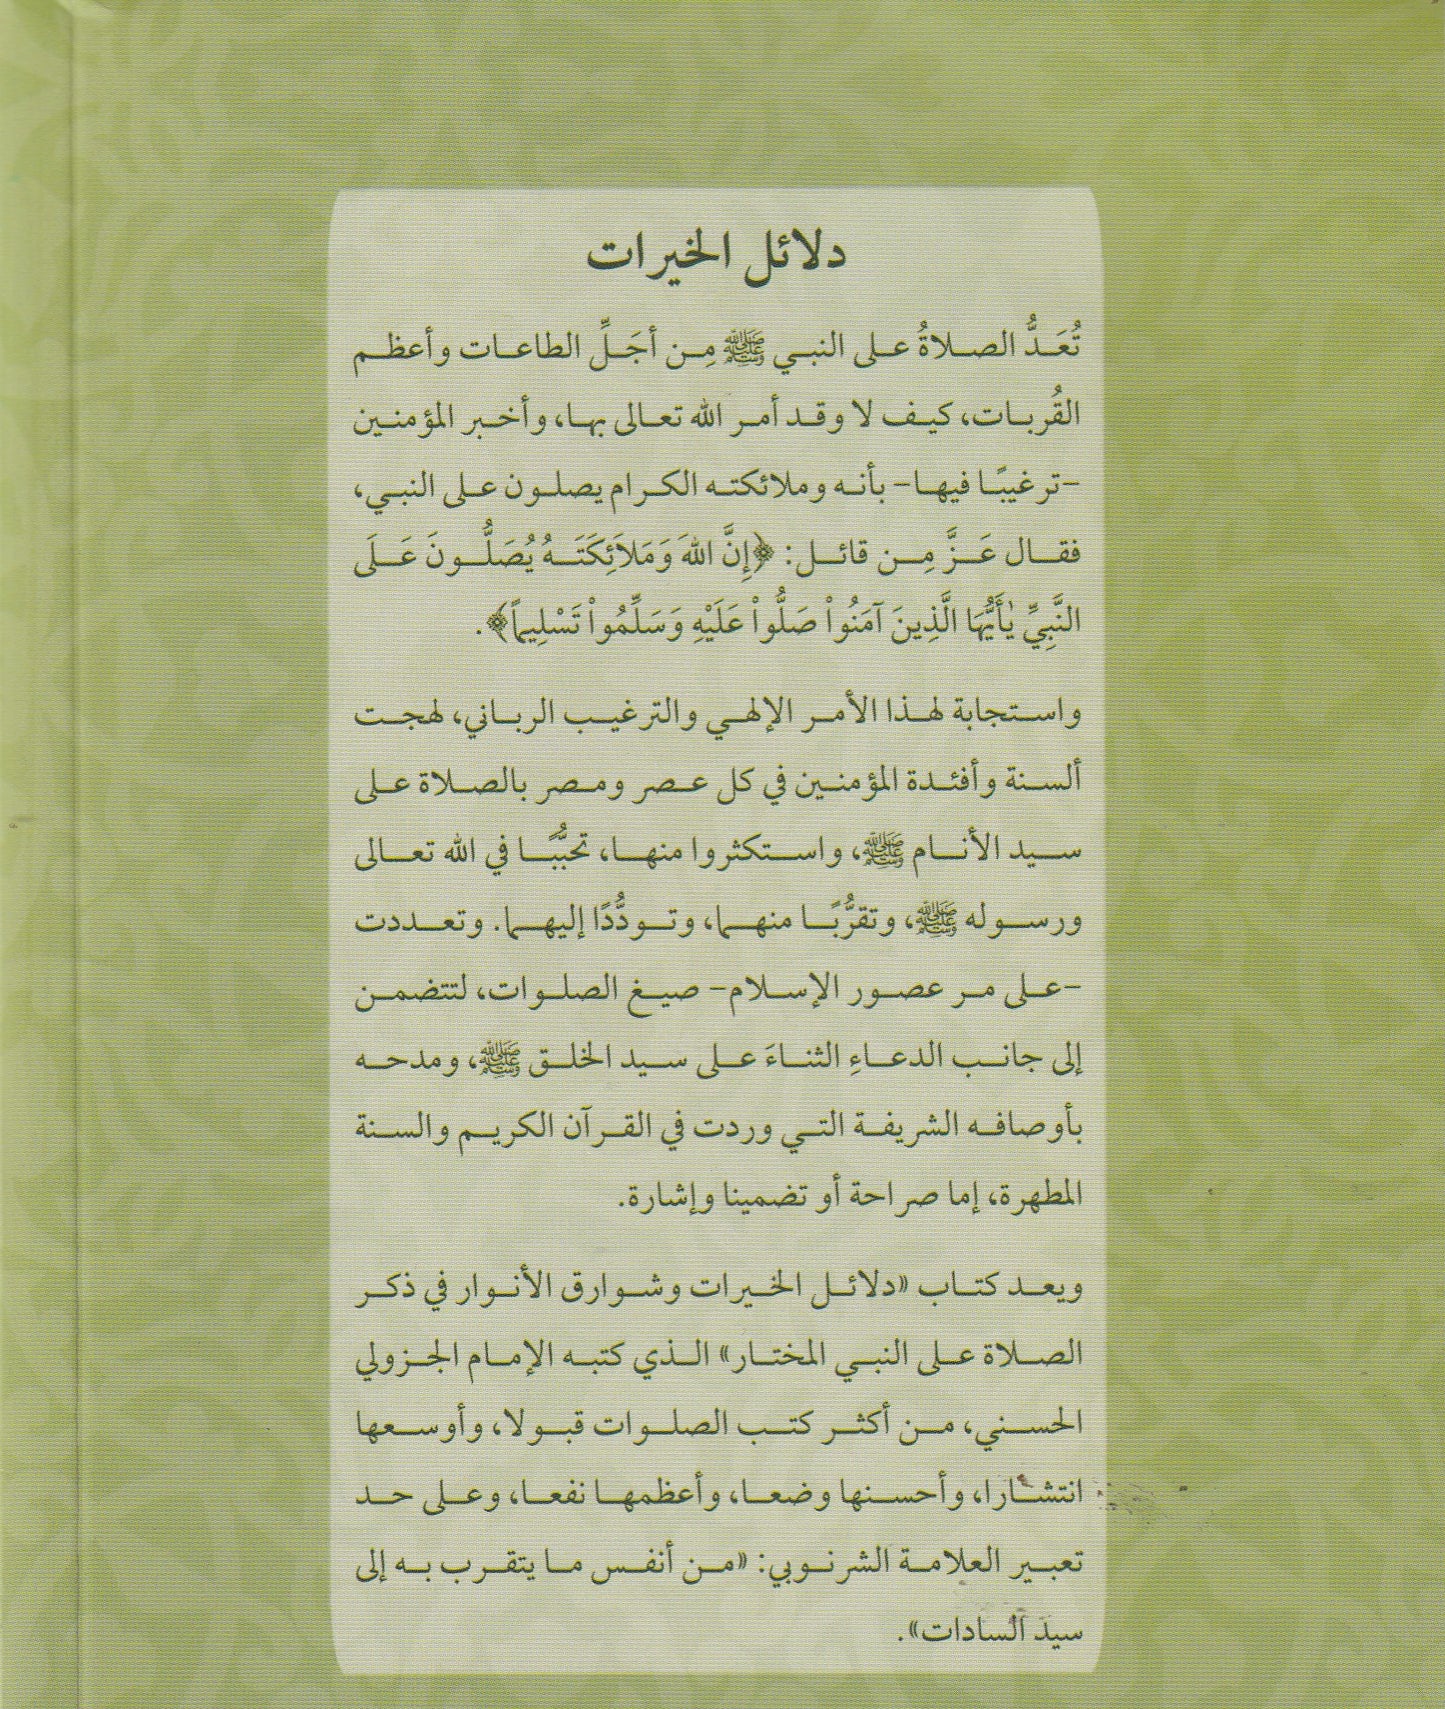 دلائل الخيرات
تُعَدُّ الصلاةُ على النبي ﷺ مِن أجَلِّ الطاعات وأعظم
القُربات، كيف لا وقد أمر الله تعالى بها، وأخبر المؤمنين
-ترغيبًا فيها- بأنه وملائكته الكرام يصلون على النبي،
فقال عَزَّ مِن قائل: ﴿إِنَّ اللهَ وَمَلاَئِكَتَهُ يُصَلُّونَ عَلَى
النَّبِيِّ يٰأَيُّهَا الَّذِينَ آمَنُواْ صَلُّواْ عَلَيْهِ وَسَلِّمُواْ تَسْلِيماً﴾.
واستجابة لهذا الأمر الإلهي والترغيب الرباني، لهجت
ألسنة وأفئدة المؤمنين في كل عصر ومصر بالصلاة على
سيد الأنام ﷺ، واستكثروا منها، تحبُّبًا في الله تعالى
ورسوله ﷺ، وتقرُّبًا منهما، وتودُّدًا إليهما. وتعددت
-على مر عصور الإسلام- صيغ الصلوات، لتتضمن
إلى جانب الدعاءِ الثناءَ على سيد الخلق ﷺ، ومدحه
بأوصافه الشريفة التي وردت في القرآن الكريم والسنة
المطهرة، إما صراحة أو تضمينا وإشارة.
ويعد كتاب «دلائل الخيرات وشوارق الأنوار في ذكر
الصلاة على النبي المختار» الذي كتبه الإمام الجزولي
الحسني، من أكثر كتب الصلوات قبولا، وأوسعها
انتشارا، وأحسنها وضعا، وأعظمها نفعا، وعلى حد
تعبير العلامة الشرنوبي: «من أنفس ما يتقرب به إلى
سيد السادات».